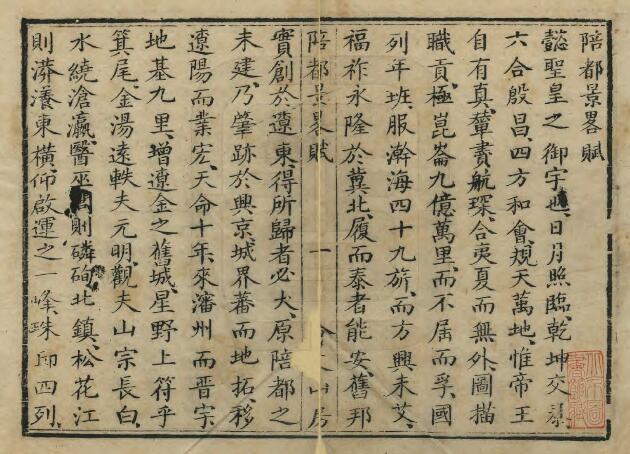 陪都景畧賦
懿聖皇之御宇也、日月照臨、乾坤交泰、
六合殷昌、四方和會、規天萬地、惟帝王
自有真、輦賮航琛、合夷夏而無外、圖描
職貢、極崑崙九億萬里、而不屈而孚、國
列年班、服瀚海四十九旂、而方興未艾、
福祚永隆於冀北、履而泰者能安、舊邦
陪都景畧賦 一 山房
實創於遼東、得所歸者必大、原陪都之
未建、乃肇跡於興京、城界蕃而地拓、移
遼陽而業宏、天命十年、來瀋州而晋宇、
地基九里、增遼金之舊城、星野上符乎
箕尾、金湯遠軼夫元明、觀夫山宗長白、
水繞滄瀛、醫巫閭則磷峋北鎮、松花江
則漭瀁東橫、仰啟運之一峰、珠邱四列、